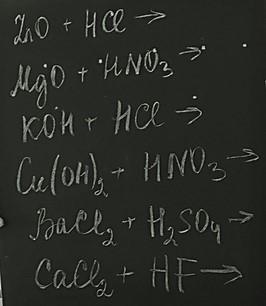 ZnO + HCl →
MgO + HNO₃ →
KOH + HCl →
Cu(OH)₂ + HNO₃ →
BaCl₂ + H₂SO₄ →
CaCl₂ + HF →